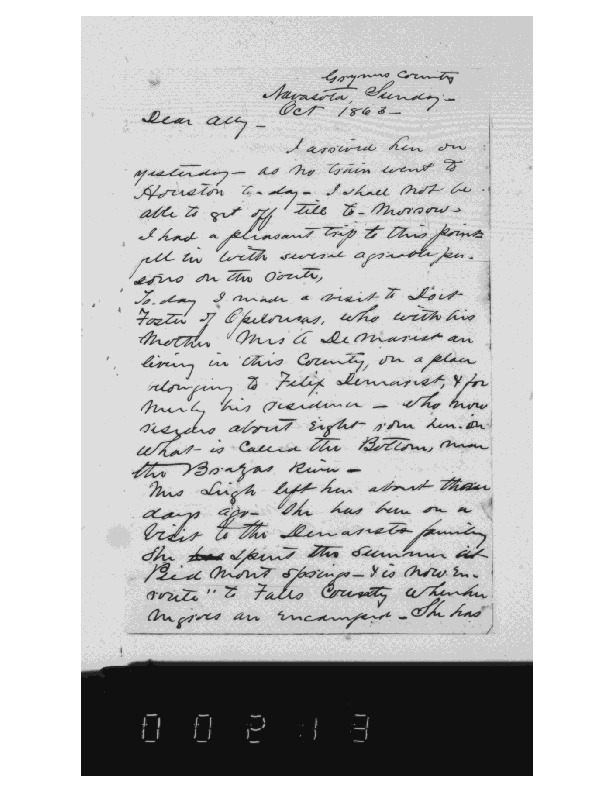 Grymes County
Navasota, Sunday -
Oct 1863 -
Dear Ally -
I arrived here on
yesterday - as no train went to
Houston to-day - I shall not be
able to get off till to-morrow -
I had a pleasant trip to this point
fell in with several agreable per-
sons on the route,
To day I made a visit to Doct
Foster of Opelousas, who with his
Mother Mrs A DeMarest are
living in this County, on a place
belonging to Felix Demarest, & for
merly his residence - who now
resides about eight from here on
what is called the Bottom, near
the Brazas River -
Mrs Leigh left here about three
days ago - She has been on a
Visit to the Demarests family
She has spent the summer at
Pied Mont Springs - & is now en-
route" to Falls County where her
negroes are encamped - She has
00213